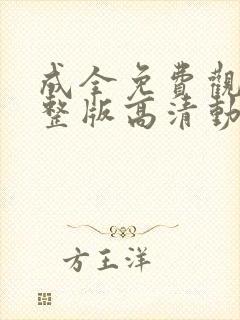 成全免費觀
整版高清動
方王洋